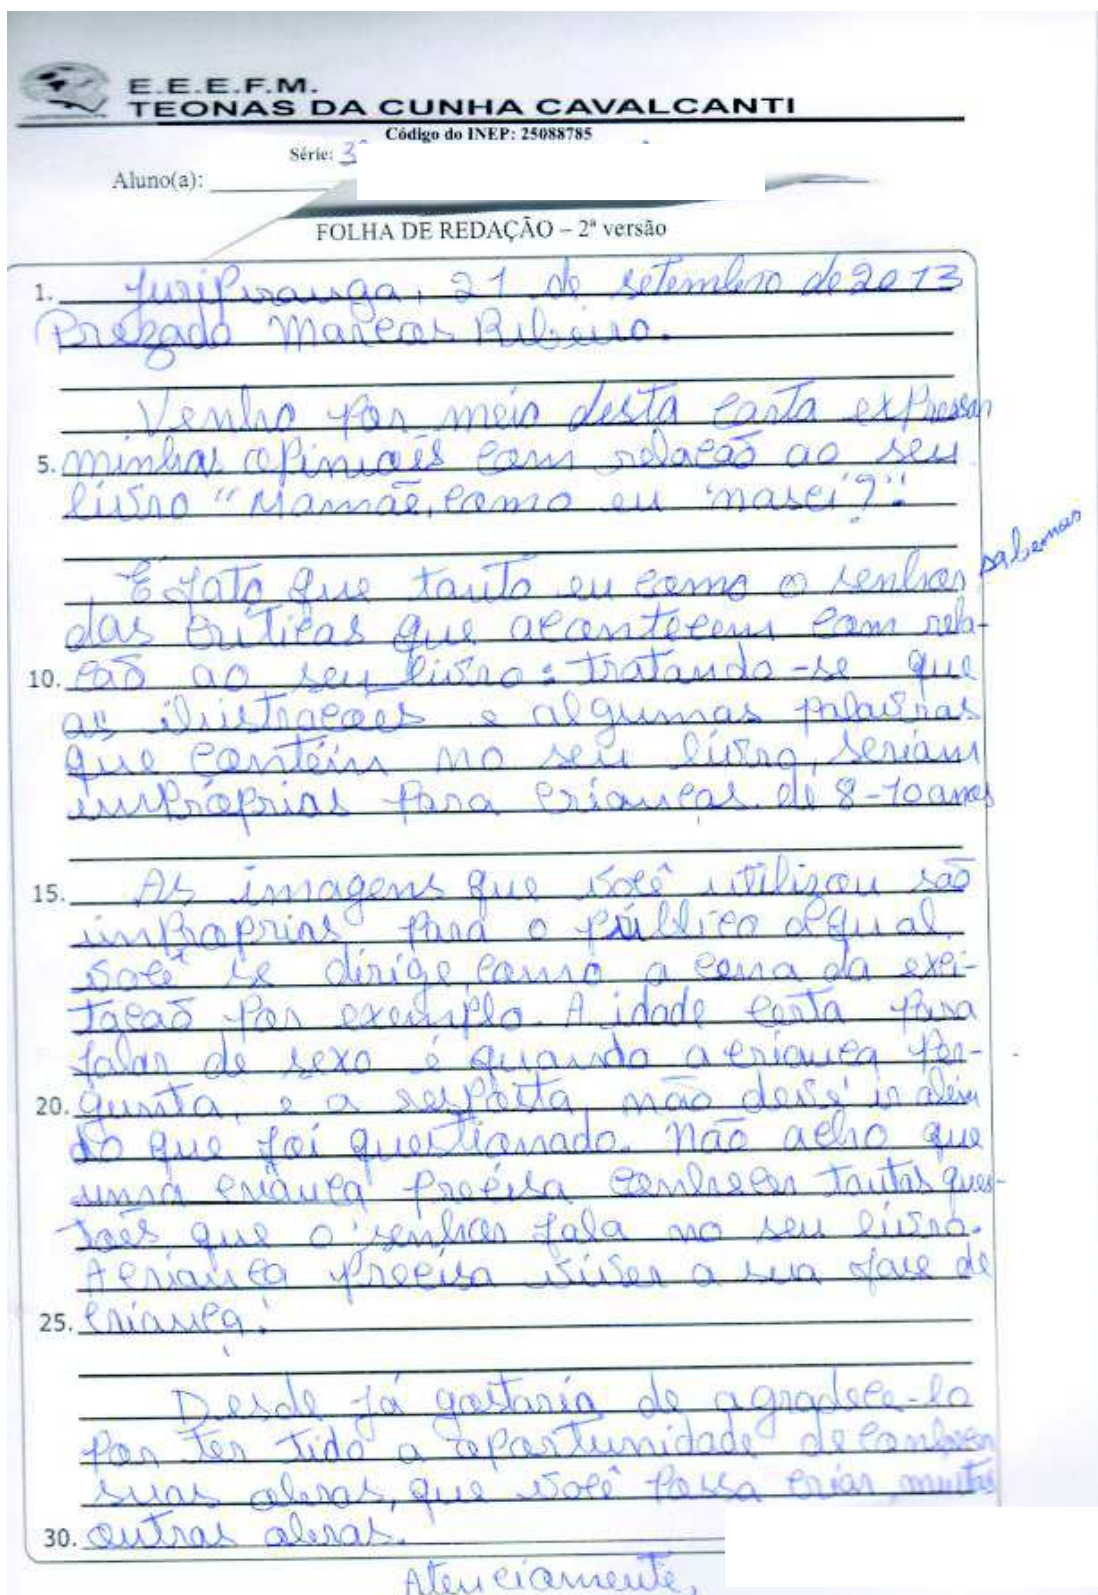 E.E.E.F.M.
TEONAS DA CUNHA CAVALCANTI
Código do INEP: 25088785
Série: 3ª
Aluno(a):
FOLHA DE REDAÇÃO – 2ª versão
1. Juripiranga, 21 de setembro de 2013
Prezado Marcos Ribeiro.
Venho por meio desta carta expressar
5. minhas opiniões com relação ao seu
livro "Mamãe, como eu nasci?".
É fato que tanto eu como o senhor sabemos
das críticas que acontecem com rela-
10. ção ao seu livro: tratando-se que
as ilustrações e algumas palavras
que contém no seu livro, seriam
impróprias para crianças de 8-10 anos
15. As imagens que você utilizou são
improprias para o público oqual
você se dirige, como a cena da exci-
tação por exemplo. A idade certa para
falar de sexo é quando a criança per-
20. gunta, e a resposta, não deve ir além
do que foi questionado. Não acho que
uma criança precisa conhecer tantas ques-
tões que o senhor fala no seu livro.
A criança precisa viver a sua fase de
25. criança.
Desde já gostaria de agradece-lo
por ter tido a oportunidade de conhecer
suas obras, que você possa criar muitas
30. outras obras.
Atenciamente,